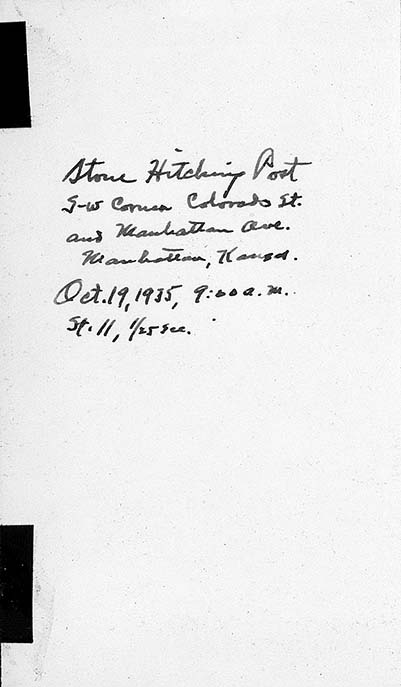 Stone Hitching Post
S-W Corner Colorado St.
and Manhattan Ave.
Manhattan, Kansas.
Oct. 19, 1935, 9:00 a.m.
St. 11, 1/25 sec.